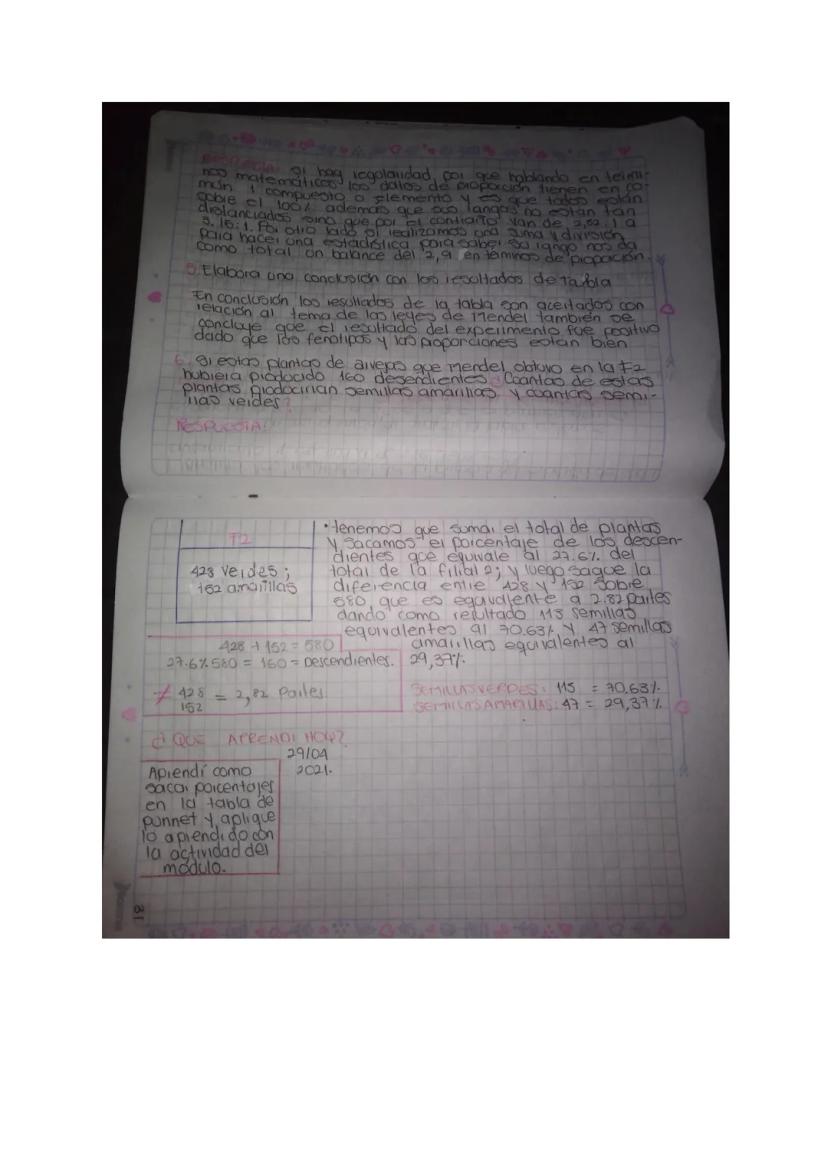 RESPUESTA: Si hay regolaridad, por que hablando en termi-
nos matemáticos los datos de proporción tienen en co-
mún 1 compuesto o elemento y es que todos están
sobre el 100% ademas que sus rangos no estan tan
distanciados sino que por el contrario van de 2,82:1 a
3.15:1. Por otro lado si realizamos una suma y división
para hacer una estadística para saber su rango nos da
como total un balance del 2,9 en terminos de proporción.
5. Elabora una conclusión con los resultados de tabla
En conclusión los resultados de la tabla son acertados con
relación al tema de las leyes de Mendel también se
concluye que el resultado del experimento fue positivo
dado que los fenotipos y las proporciones estan bien
6. Si estas plantas de alverjas que Mendel obtuvo en la F2
hubiera producido 160 desendientes ¿Cuantas de estas
plantas producirian semillas amarillas y cuantas semi-
llas verdes?
RESPUESTA:
F2
428 verdes;
152 amarillas
• tenemos que sumar el total de plantas
y sacamos el porcentaje de los descen-
dientes que equivale al 27.6% del
total de la filial 2; y luego saque la
diferencia entre 428 y 152 sobre
580 que es equivalente a 2.82 partes
dando como resultado 113 semillas
equivalentes al 70.63% y 47 semillas
amarillas equivalentes al
29,37%.
428 + 152 = 580
27.6% 580 = 160 = Descendientes.
≠ 428
152 = 2,82 Partes
SEMILLAS VERDES: 113 = 70,63%
SEMILLAS AMARILLAS: 47 = 29,37%
¿QUE APRENDI HOY?
29/04
2021.
Aprendí como
sacar porcentajes
en la tabla de
punnet y aplique
lo aprendido con
la actividad del
modulo.
31